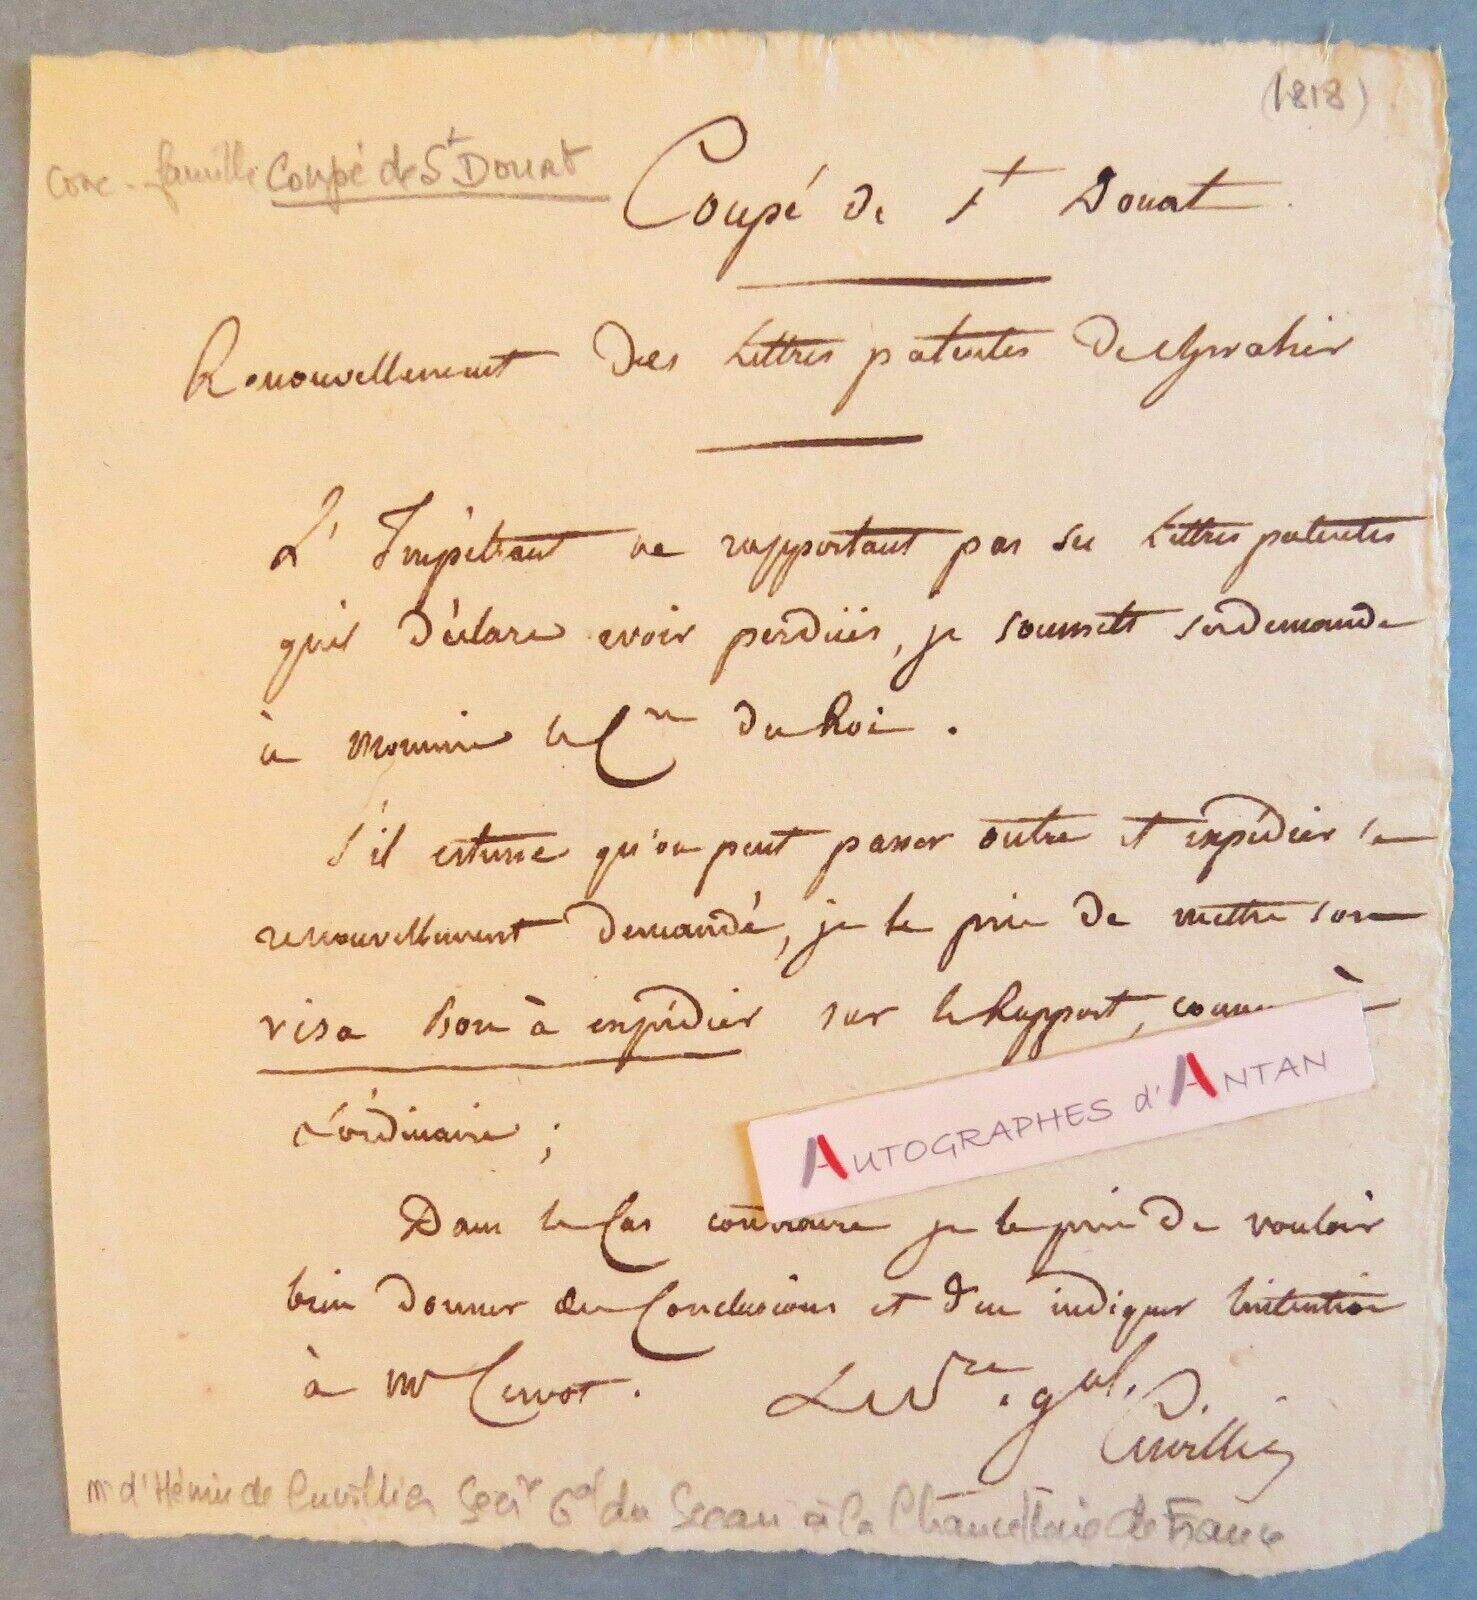 (1818)
conc. famille Coupé de St Douat
Coupé de St Douat.
Renouvellement des Lettres patentes de chevalier
L'Impétrant ne rapportant pas ses Lettres patentes
qu'il déclare avoir perdües, je soumets sa demande
à Monsieur le Cre du Roi.
S'il estime qu'on peut passer outre et expédier le
renouvellement demandé, je le prie de mettre son
visa bon à expédier sur le Rapport, comme à
l'ordinaire;
AUTOGRAPHES d'ANTAN
Dans le Cas contraire je le prie de vouloir
bien donner des Conclusions et d'en indiquer l'intention
à Mr Cuvot.
Le Sre. gal.
D. Cuvillier
mr d'Hénin de Cuvillier Secr Gal du Sceau à la Chancellerie de France